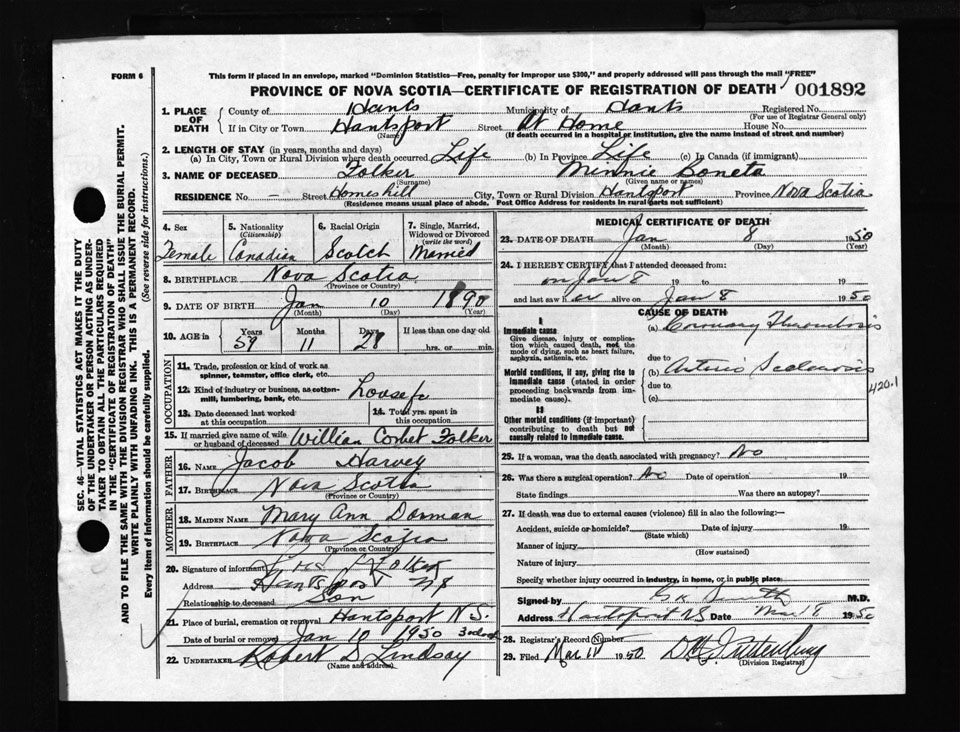 FORM 6
This form if placed in an envelope, marked "Dominion Statistics—Free, penalty for improper use $300," and properly addressed will pass through the mail "FREE"
PROVINCE OF NOVA SCOTIA—CERTIFICATE OF REGISTRATION OF DEATH 001892
SEC. 46—VITAL STATISTICS ACT MAKES IT THE DUTY
OF THE UNDERTAKER OR PERSON ACTING AS UNDER-
TAKER TO OBTAIN ALL THE PARTICULARS REQUIRED
IN THE "CERTIFICATE OF REGISTRATION OF DEATH"
AND TO FILE THE SAME WITH THE DIVISION REGISTRAR WHO SHALL ISSUE THE BURIAL PERMIT.
WRITE PLAINLY WITH UNFADING INK. THIS IS A PERMANENT RECORD.
Every item of information should be carefully supplied. (See reverse side for instructions.)
1. PLACE OF DEATH County of Hants Municipality of Hants Registered No.
(For use of Registrar General only)
If in City or Town Hantsport Street At Home House No.
(Name) (If death occurred in a hospital or institution, give the name instead of street and number)
2. LENGTH OF STAY (in years, months and days)
(a) In City, Town or Rural Division where death occurred Life (b) In Province Life (c) In Canada (if immigrant)
3. NAME OF DECEASED Folker Minnie Boneta
(Surname) (Given name or names)
RESIDENCE No. — Street Homeshill City, Town or Rural Division Hantsport Province Nova Scotia
(Residence means usual place of abode. Post Office Address for residents in rural parts not sufficient)
4. Sex 5. Nationality (Citizenship) 6. Racial Origin 7. Single, Married, Widowed or Divorced (write the word)
Female Canadian Scotch Married
8. BIRTHPLACE Nova Scotia
(Province or Country)
9. DATE OF BIRTH Jan 10 1890
(Month) (Day) (Year)
10. AGE in Years Months Days If less than one day old
59 11 28 hrs. or min.
OCCUPATION
11. Trade, profession or kind of work as
spinner, teamster, office clerk, etc.
12. Kind of industry or business, as cotton-
mill, lumbering, bank, etc.
13. Date deceased last worked
at this occupation
14. Total yrs. spent in
this occupation
15. If married give name of wife
or husband of deceased William Corbet Folker
FATHER
16. NAME Jacob Harvey
17. BIRTHPLACE Nova Scotia
(Province or Country)
MOTHER
18. MAIDEN NAME Mary Ann Dorman
19. BIRTHPLACE Nova Scotia
(Province or Country)
20. Signature of informant Folker
Address Hantsport NS
Relationship to deceased Son
21. Place of burial, cremation or removal Hantsport N.S.
Date of burial or removal Jan 10 1950
22. UNDERTAKER Robert D Lindsay
(Name and address)
MEDICAL CERTIFICATE OF DEATH
23. DATE OF DEATH Jan 8 1950
(Month) (Day) (Year)
24. I HEREBY CERTIFY that I attended deceased from:
on Jan 8 19 to 19
and last saw her alive on Jan 8 1950
CAUSE OF DEATH
I
Immediate cause
Give disease, injury or complica-
tion which caused death, not the
mode of dying, such as heart failure,
asphyxia, asthenia, etc.
(a) Coronary Thrombosis
due to
Morbid conditions, if any, giving rise to
immediate cause (stated in order
proceeding backwards from im-
mediate cause).
(b) Arterio Sclerosis
due to
(c)
420.1
II
Other morbid conditions (if important)
contributing to death but not
causally related to immediate cause.
25. If a woman, was the death associated with pregnancy? No
26. Was there a surgical operation? No Date of operation 19
State findings Was there an autopsy?
27. If death was due to external causes (violence) fill in also the following:—
Accident, suicide or homicide? Date of injury 19
(State which)
Manner of injury
(How sustained)
Nature of injury
Specify whether injury occurred in industry, in home, or in public place.
Signed by Smith M.D.
Address Hantsport NS Date Mar 8 1950
28. Registrar's Record Number
29. Filed Mar 11 1950
(Division Registrar)